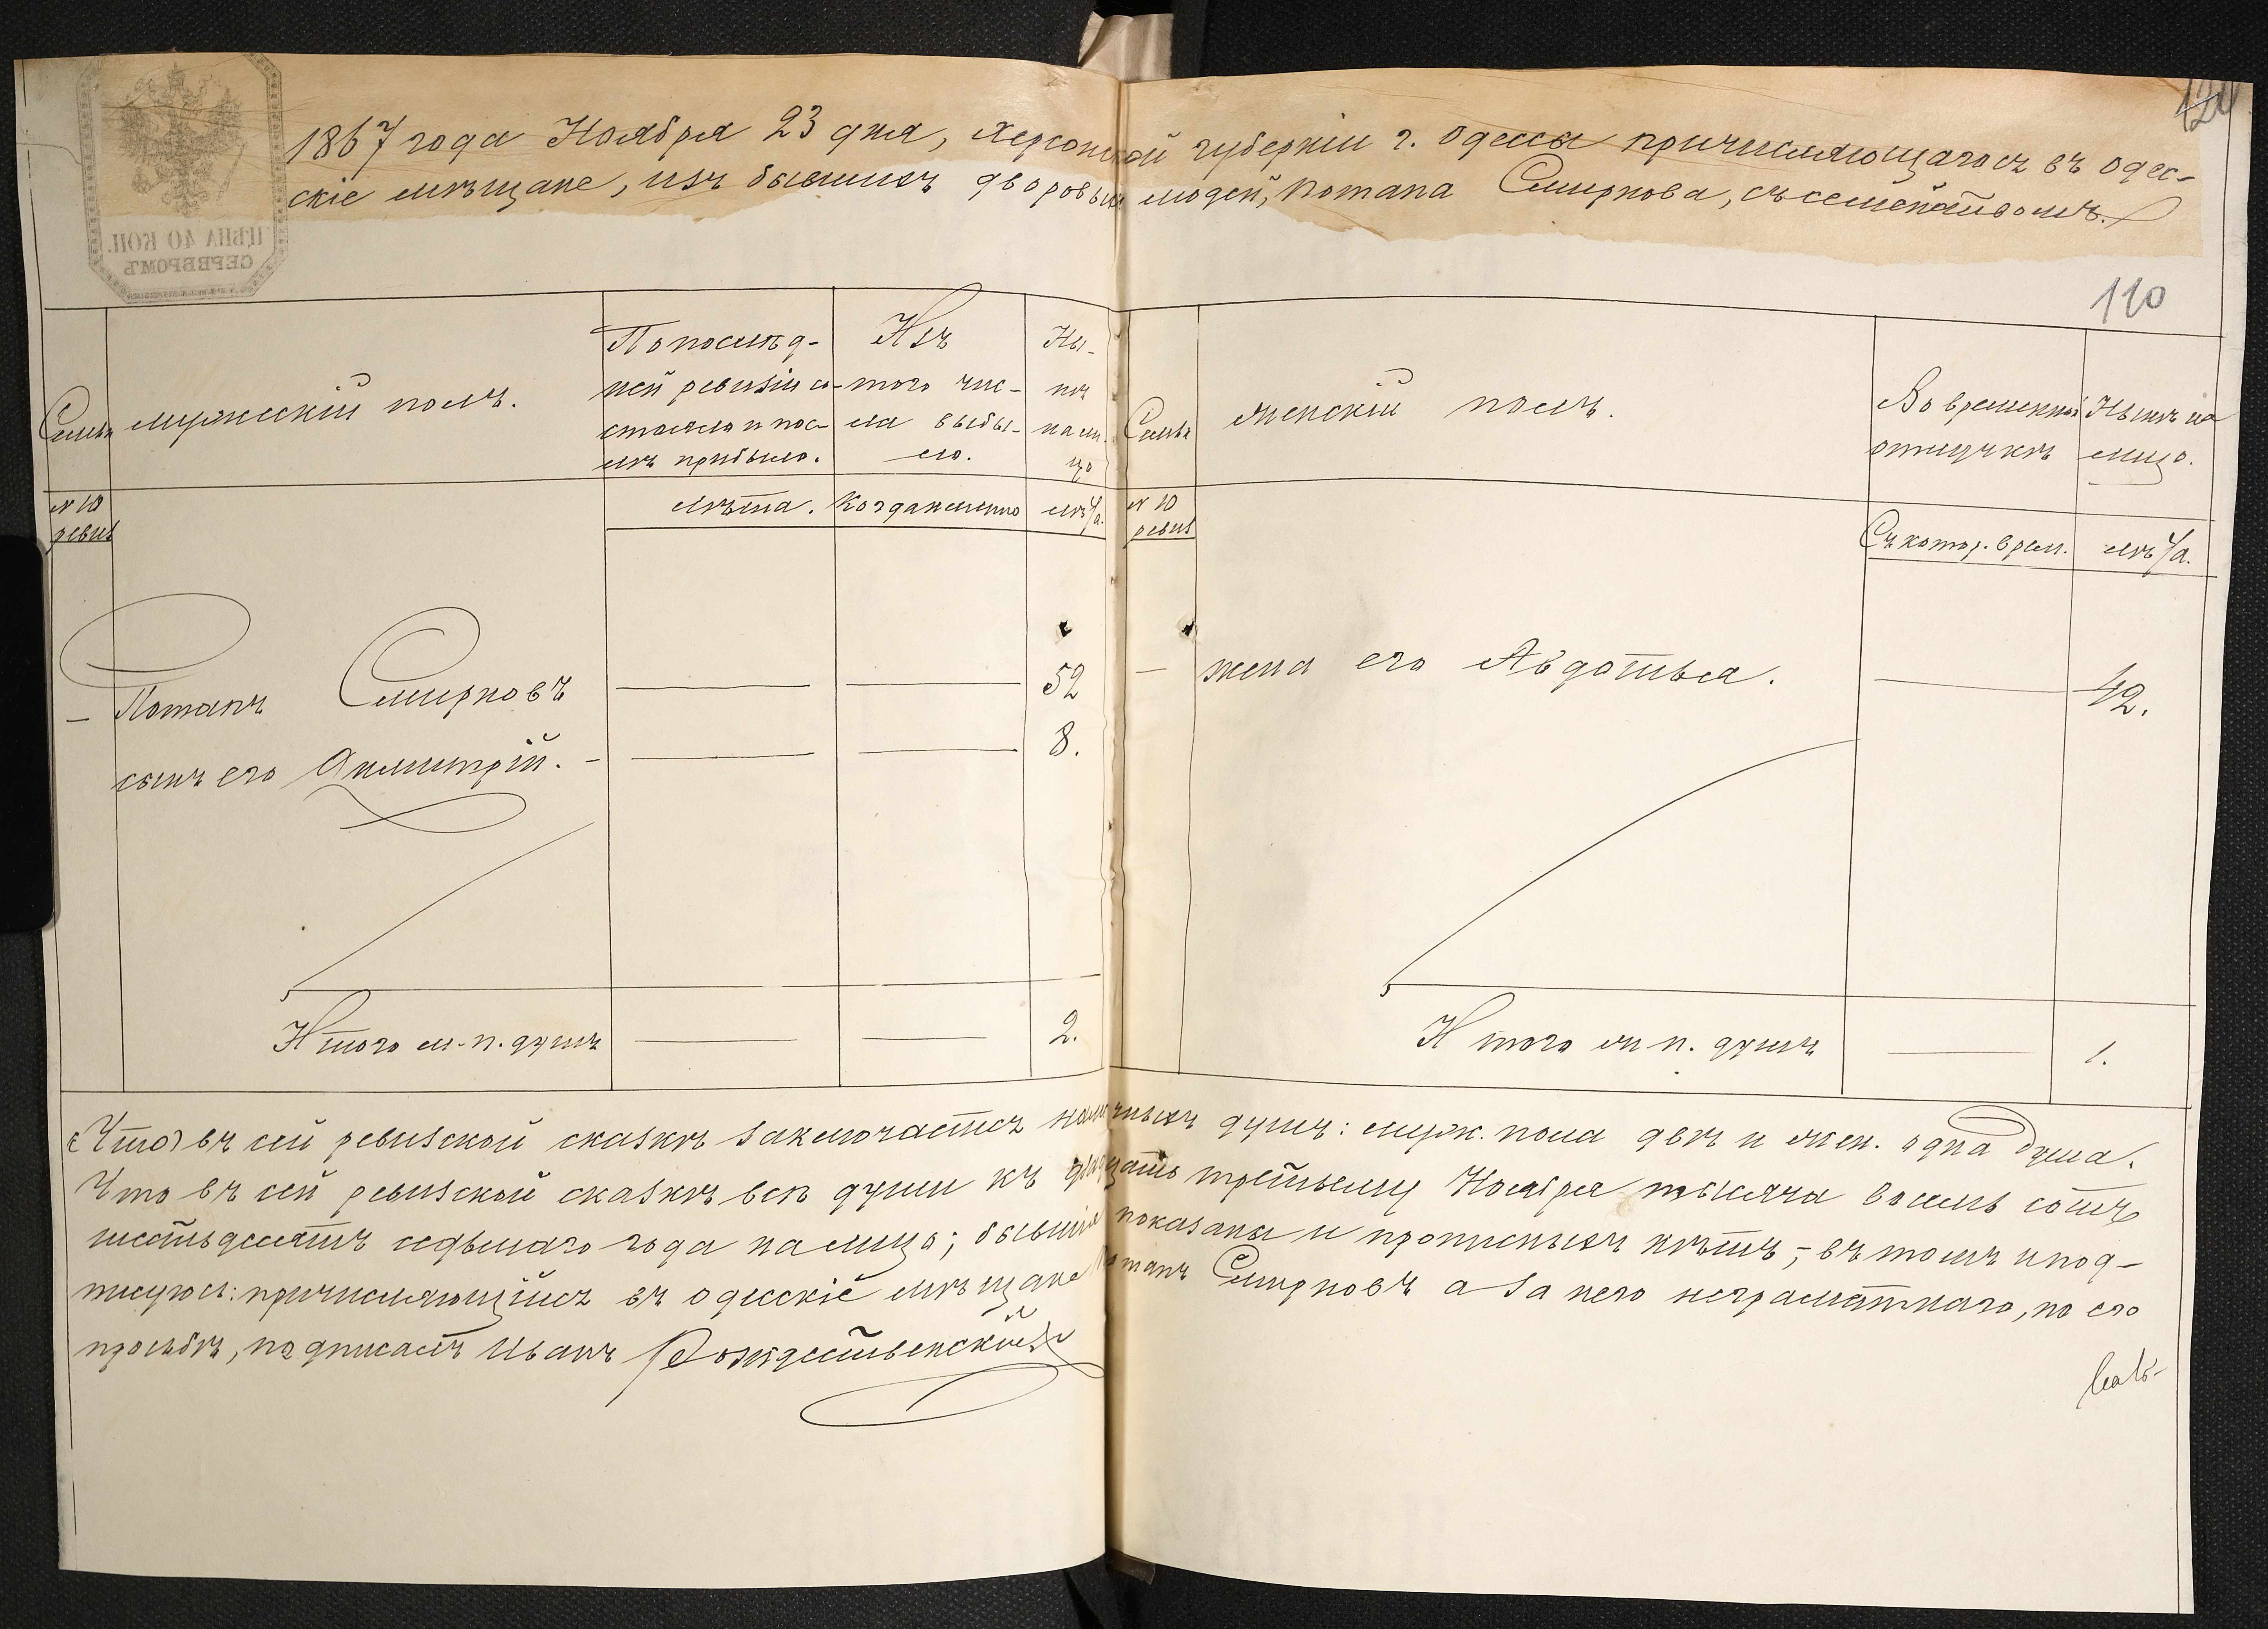 124
1867 года Ноября 23 дня, Херсонской губерніи г. Одессы причисляющагося въ Одес-
скіе мѣщане, изъ бывшихъ дворовыхъ людей, Потапа Смирнова, съ семействомъ.
ЦѢНА 40 КОП.
СЕРЕБРОМЪ
110
Семья
мужескій полъ.
По послѣд-
ней ревизіи со-
стояло и пос-
лѣ прибыло.
Изъ
того чис-
ла выбы-
ло.
Ны-
нѣ
на ли-
цо
Семья
женскій полъ.
Во временной
отлучкѣ
Нынѣ на
лицо.
№ 10
ревиз
лѣта.
Когда именно
лѣта.
№ 10
ревиз
Съ котор. врем.
лѣта.
— Потапъ Смирновъ — — 52
сынъ его Димитрій. — — 8.
— жена его Авдотья. — 42.
Итого м. п. душъ — — 2.
Итого ж. п. душъ — 1.
Что въ сей ревизской сказкѣ заключается наличныхъ душъ: муж. пола двѣ и жен. одна душа.
Что въ сей ревизской сказкѣ всѣ души къ двадцать третьему Ноября тысяча восемь сотъ
шестьдесятъ седьмаго года на лицо; бывшія показаны и прописныхъ нѣтъ, — въ томъ и под-
писуюсь: причисляющійся въ Одесскіе мѣщане Потапъ Смирновъ а за него неграматнаго, по его
просьбѣ, подписалъ Иванъ Рождественскій